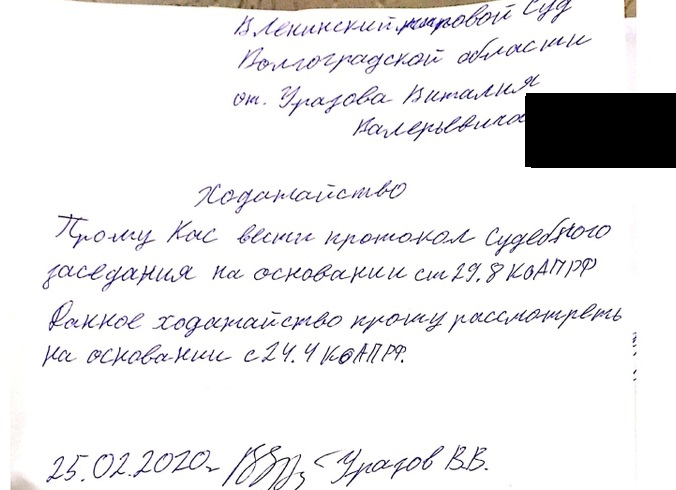 В Ленинский мировой Суд
Волгоградской области
от. Уразова Виталия
Валерьевича
Ходатайство
Прошу Вас вести протокол Судебного
заседания на основании ст 29.8 КоАП РФ
Данное ходатайство прошу рассмотреть
на основании с 24.4 КоАП РФ.
25.02.2020г Уразов В.В.